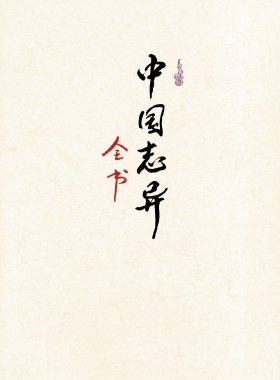 中国志异
全书